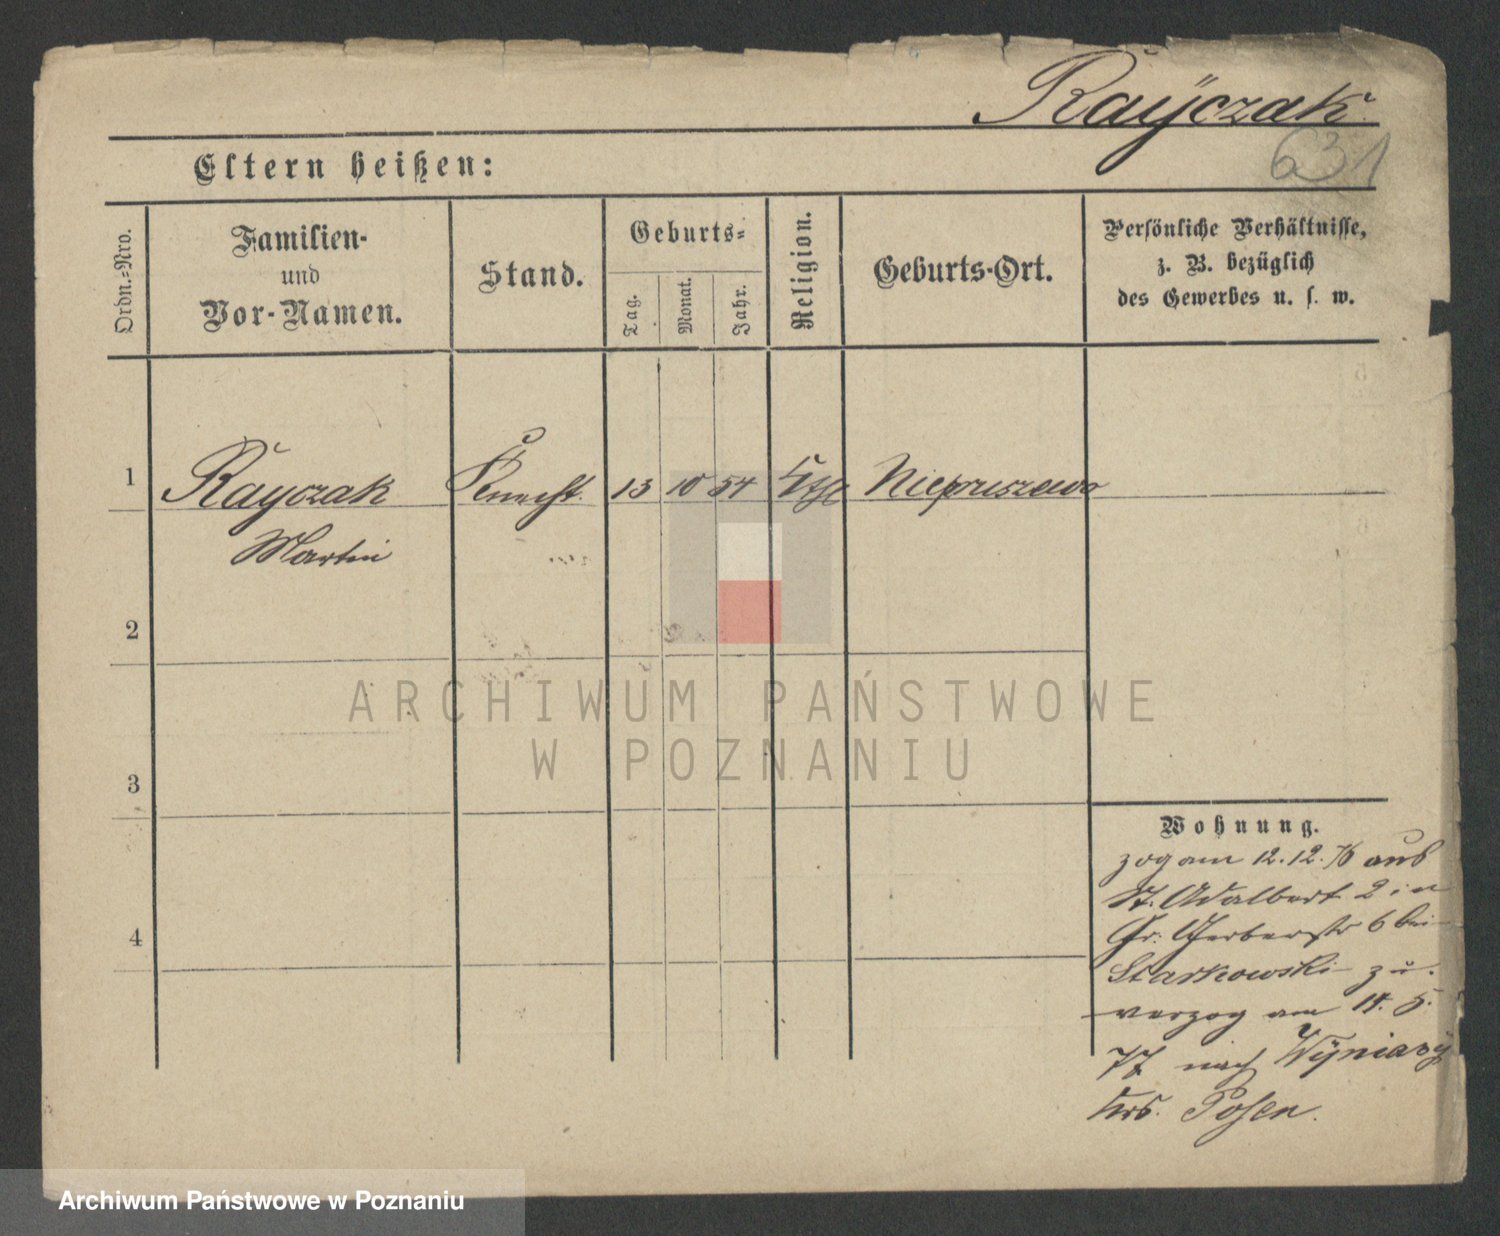 Rayczak
631
Eltern heißen:
Ordn.-Nro.
Familien-
und
Vor-Namen.
Stand.
Geburts-
Tag.
Monat.
Jahr.
Religion.
Geburts-Ort.
Persönliche Verhältnisse,
z. B. bezüglich
des Gewerbes u. s. w.
1 Rayczak Knecht. 13 10 54 ktsch Niepruszewo
Martin
2
ARCHIWUM PAŃSTWOWE
W POZNANIU
3
Wohnung.
zog am 12.12.76 aus
St. Adalbert 2 in
Gr. Gerberstr 6 bei
Starkowski zu.
verzog am 14. 5.
77 nach Wyniary
Krs. Posen.
4
Archiwum Państwowe w Poznaniu